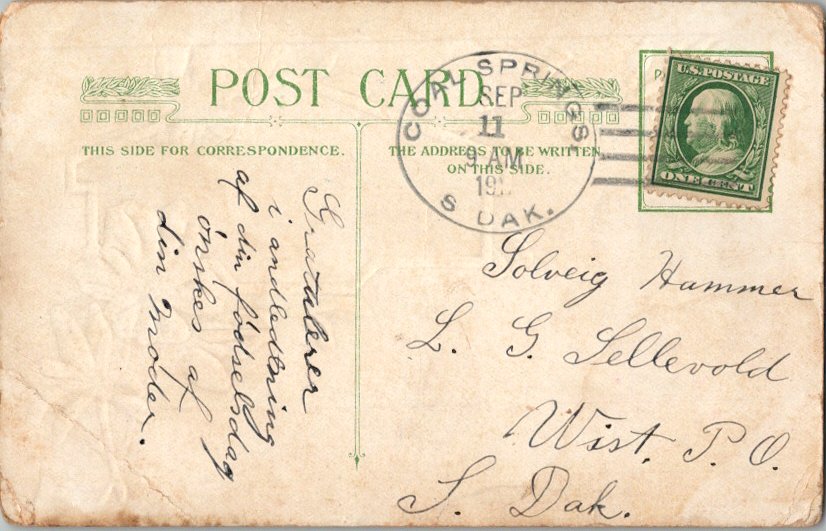 POST CARD
THIS SIDE FOR CORRESPONDENCE.
THE ADDRESS TO BE WRITTEN
ON THIS SIDE.
COAL SPRINGS,
SEP
11
9 AM
S. DAK.
U.S. POSTAGE
ONE CENT
Gratulerer
i andledning
af din fødselsdag
ønskes af
din Moder.
Solveig Hammer
L. G. Sellevold
Wist, P. O.
S. Dak.